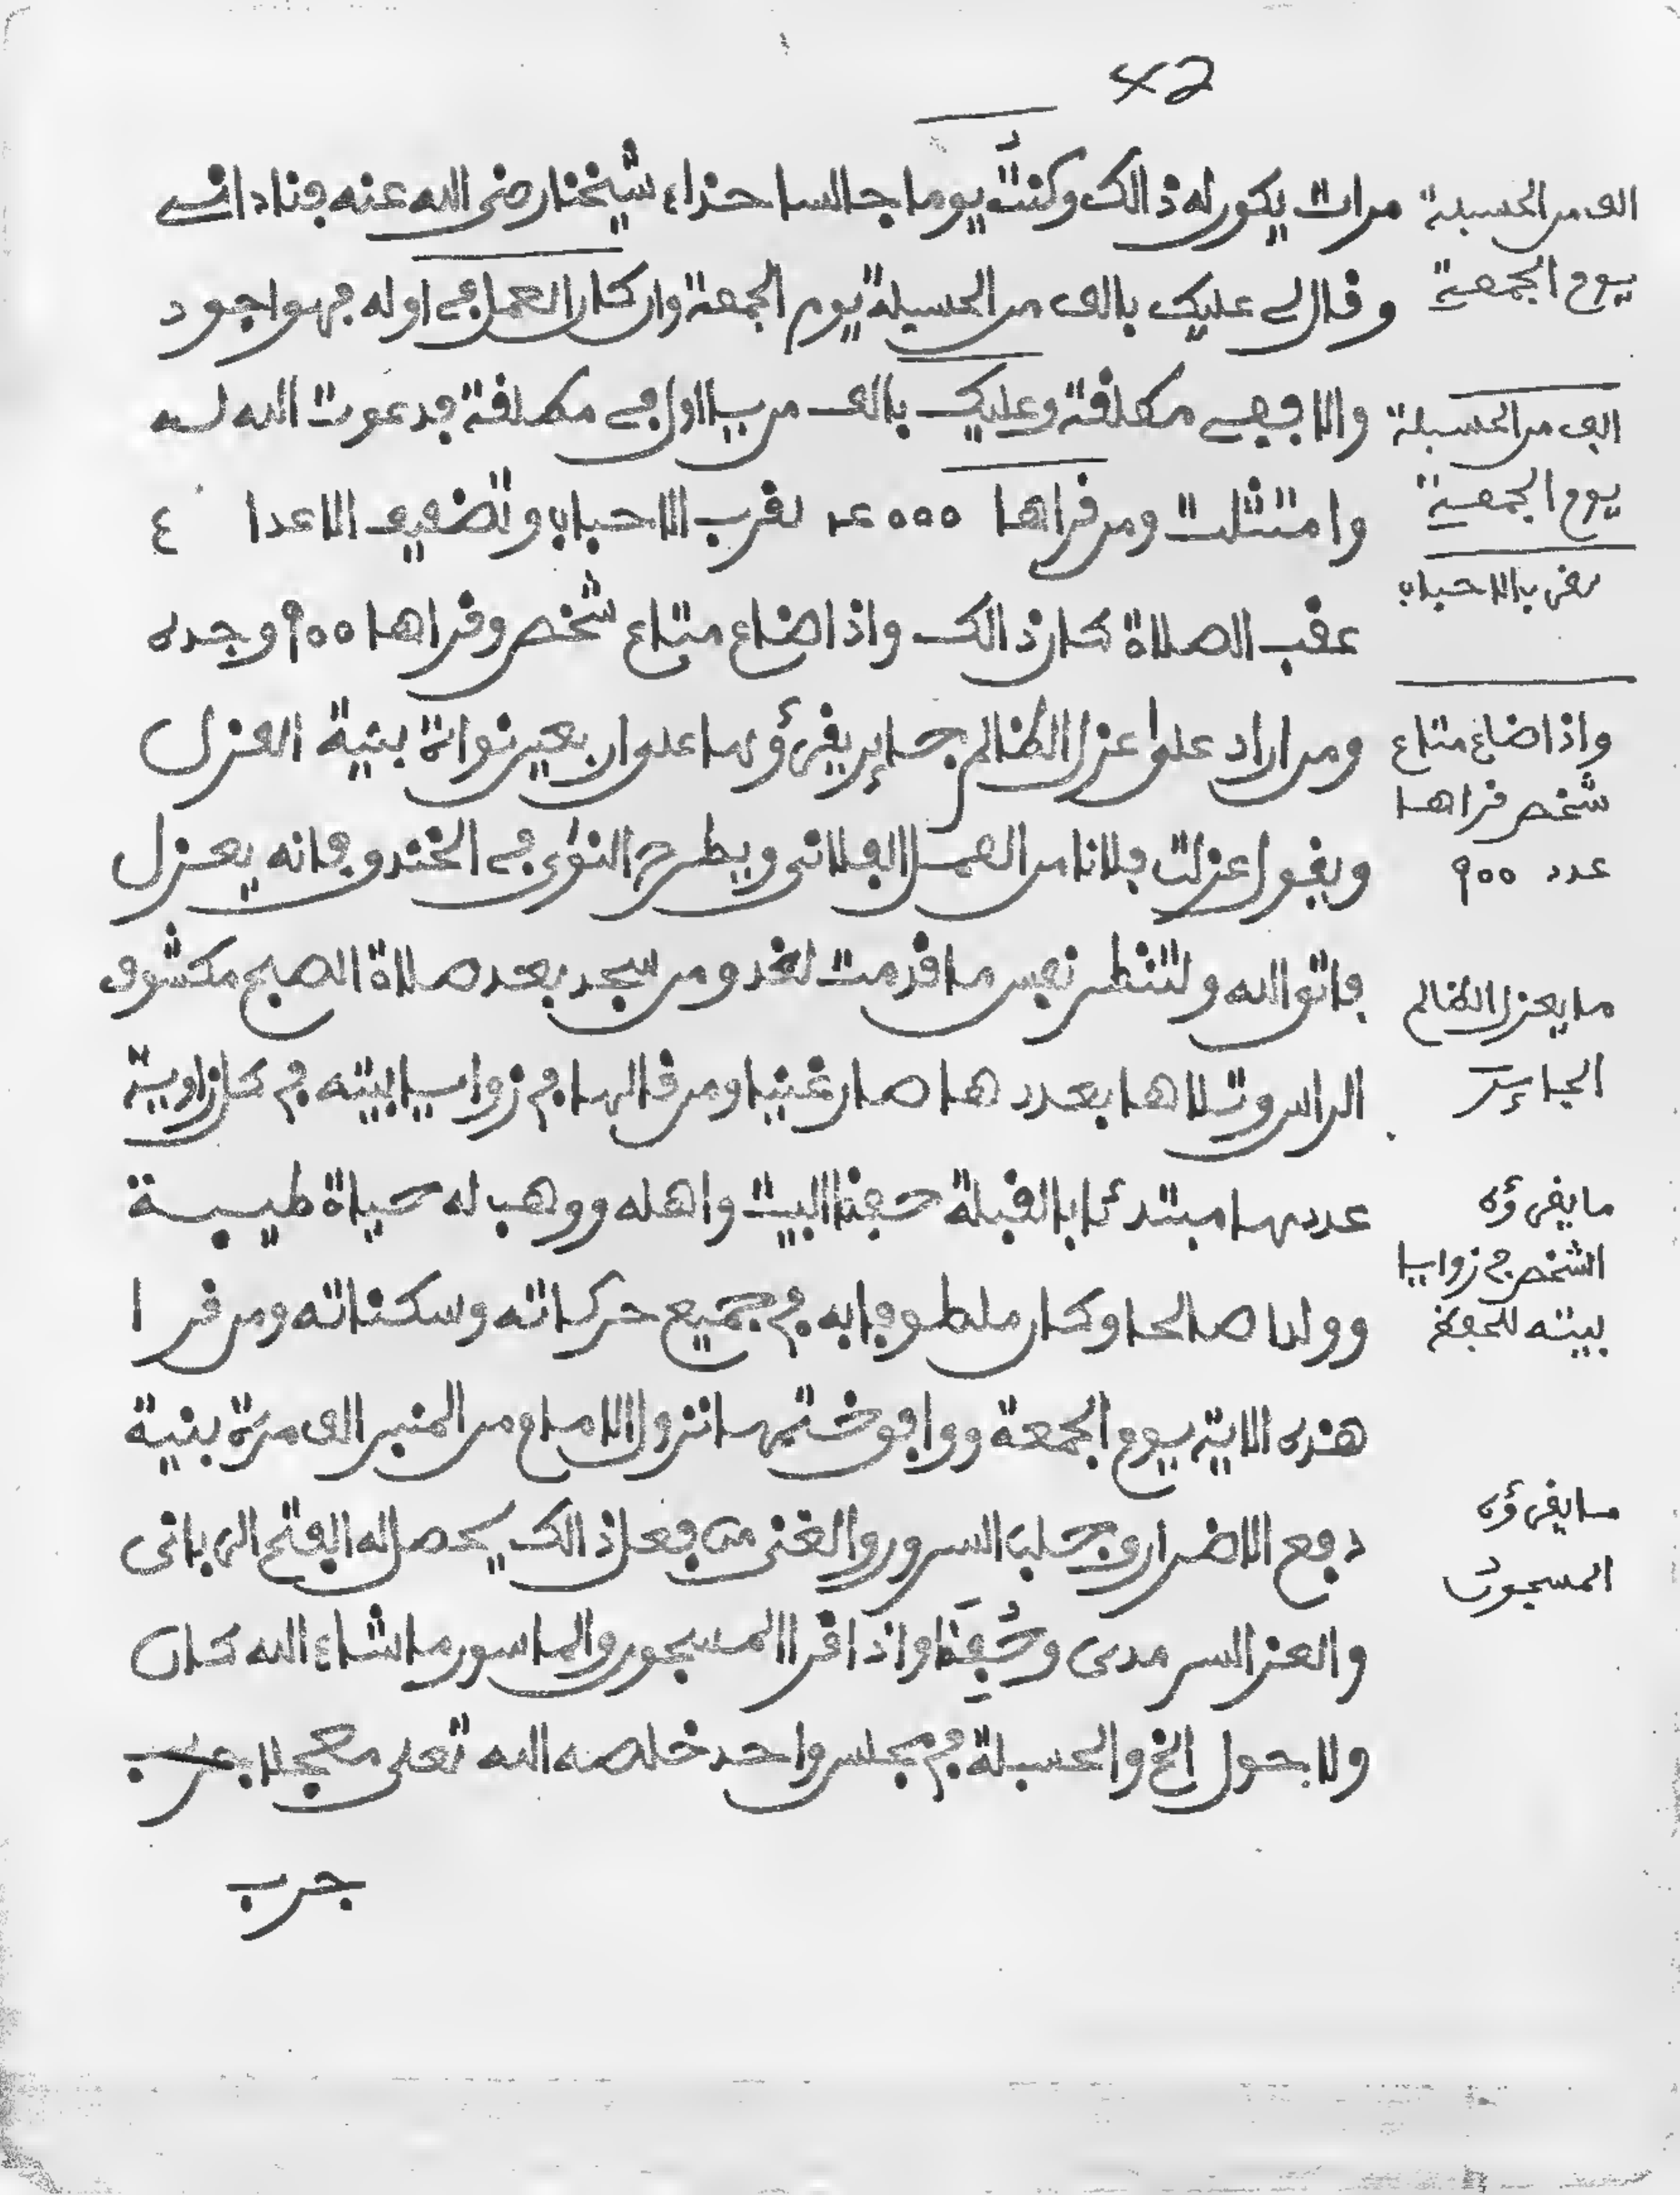 42
مرات يكون له ذالك وكنت يوما جالسا حذاء شيخنا رضى الله عنه فنادانى
وقال لى عليك بالف من الحسبلة يوم الجمعة وان كان العمل فى اوله فهو اجود
والا ففى مطلقه وعليك بالف من ب الاول فى مطلقه فدعوت الله له
وامتثلت ومن قراها ٤٠٠٠ لقرب الاحباب وتضعيف الاعدا ٤
عقب الصلاة كان ذالك واذا ضاع متاع شخص وقراها ٩٠٠ وجده
ومن اراد على عزل الظالم جاير يقرؤها على اربعين نواة بنية العزل
ويقول عزلت فلانا من العمل الفلانى ويطرح النوى فى الخندق فانه يعزل
فاتق الله ولتنظر نفس ما قدمت لغد ومن سجد بعد صلاة الصبح مكشوف
الراس وتلاها بعددها صار غنيا ومن قالها فى زوايا بيته فى كل زاوية
عددها مبتدئا بالقبلة حفظ البيت واهله ووهب له حياة طيبة
وولدا صالحا وكان ملطوفا به فى جميع حركاته وسكناته ومن قرا
هذه الاية يوم الجمعة ووافق ختمها نزول الامام من المنبر الف مرة بنية
دفع الاضرار وجلب السرور والغنى من فعل ذالك يحصل له الفتح الربانى
والعز السرمدى وحفظ واذا قرا المسجون والماسور ما شاء الله كان
ولا حول الخ والحسبلة فى مجلس واحد خلصه الله تعلى معجلا جرب
جرب
الف من الحسبلة
يوم الجمعة
الف من الحسبلة
يوم الجمعة
لقرب الاحباب
واذا ضاع متاع
شخص قراها
عدد ٩٠٠
ما يعزل الظالم
الجاير
ما يقرؤه
الشخص فى زوايا
بيته للحفظ
ما يقرؤه
المسجون